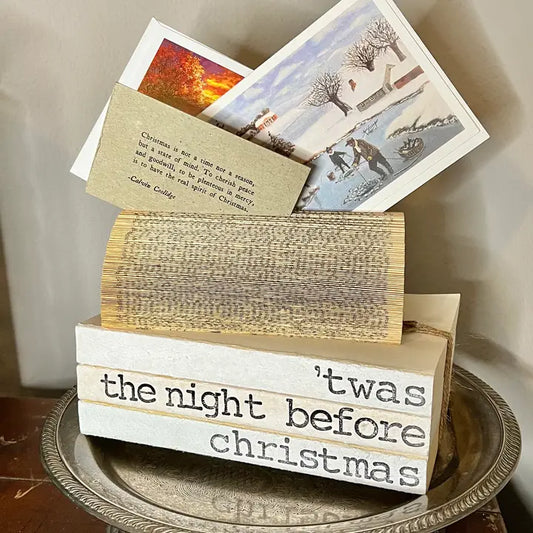 Christmas is not a time nor a season,
but a state of mind. To cherish peace
and goodwill, to be plenteous in mercy,
is to have the real spirit of Christmas.
-Calvin Coolidge
'twas
the night before
christmas